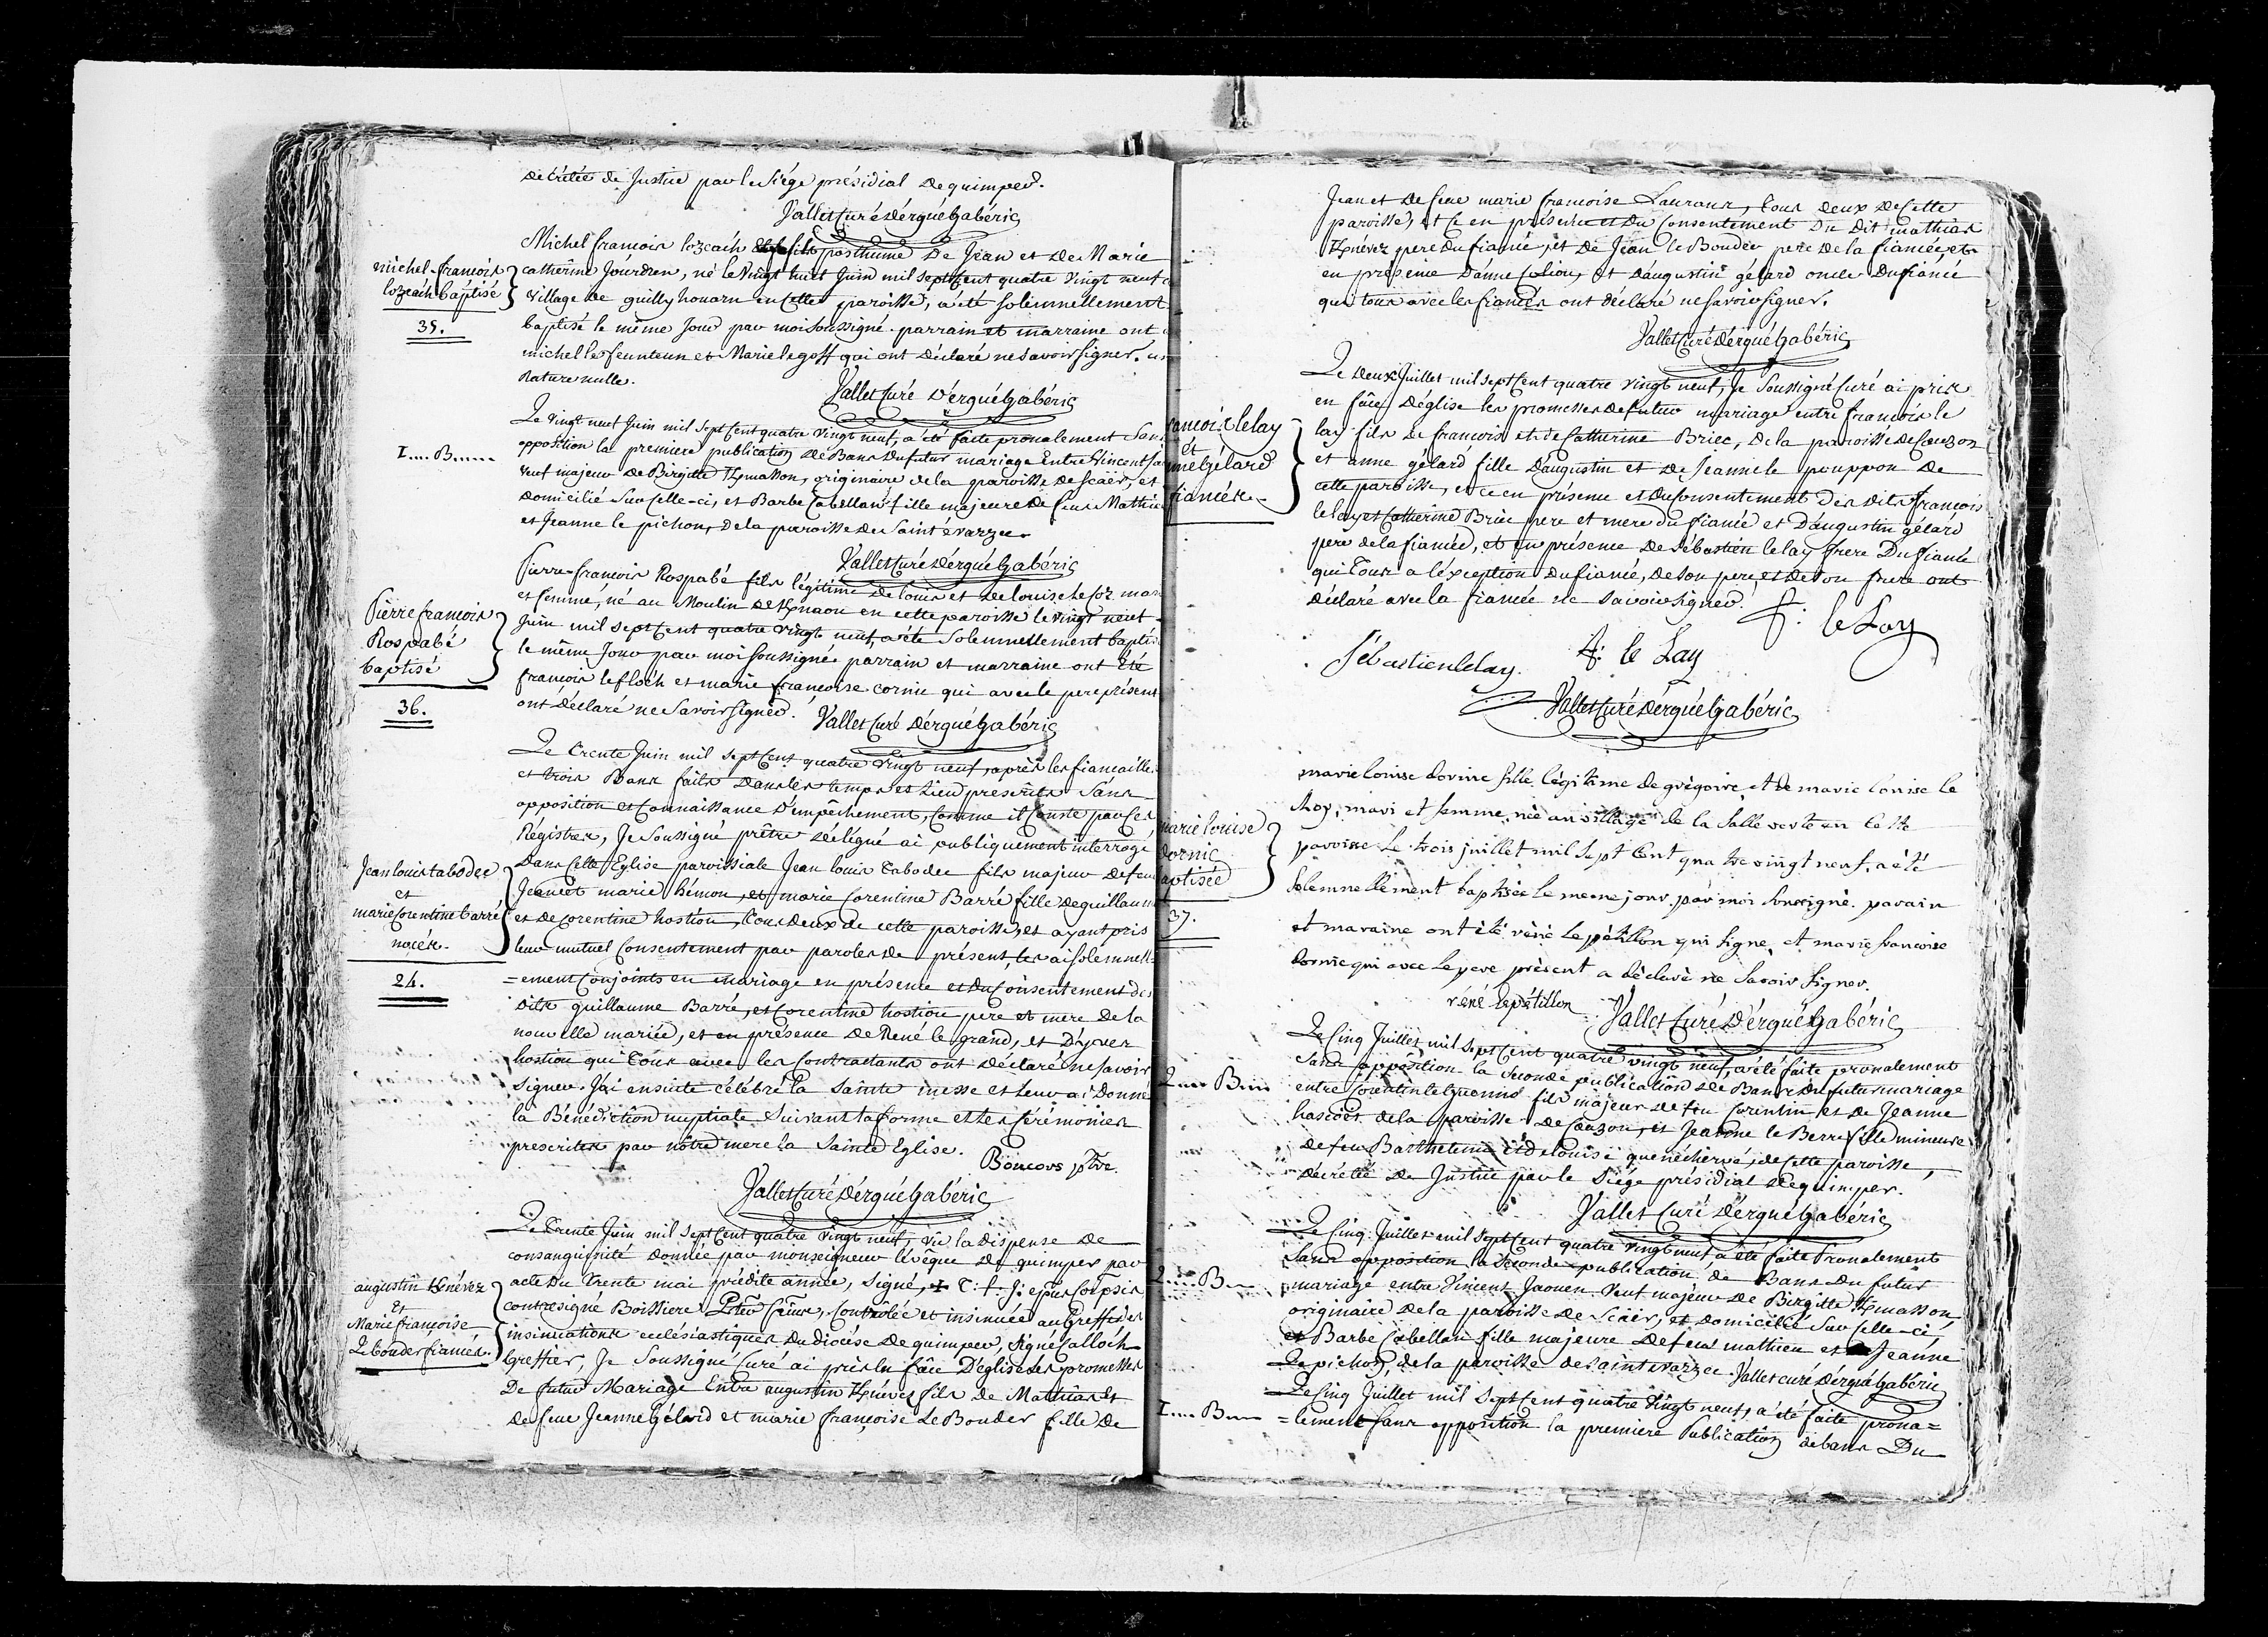 décrétée de Justice par le Siége présidial de quimper.
Vallet Curé d'érgué Gabéric
michel-françois
lozeách baptisé
35.
Michel françois lozeách posthume De Jean et de Marie
catherine Jourdren, né le Vingt huit Juin mil Sept Cent quatre Vingt neuf
village de guillyhouarn en Cette paroisse, a été solemnellement
baptisé le même Jour par moi Soussigné. parrain et marraine ont
michel le feunteun et Marie le goff qui ont déclaré ne Savoir signer.
Rature nulle.
Vallet Curé d'érgué Gabéric
I.... B......
Le Vingt neuf Juin mil Sept Cent quatre Vingt neuf, a été faite pronalement Sans
opposition la premiere publication de Bans du futur mariage Entre Vincent
Veuf majeur de Birgitte Kmasson, originaire de la paroisse de Scäer, et
domicilié Sur Celle-ci, et Barbe Cabellan fille majeure de feu Mathieu
et Jeanne le pichon, de la paroisse de Saint évarzec.
Vallet Curé d'érgué Gabéric
Pierre françois
Rospabé
baptisé
36.
Pierre-françois Rospabé fils légitime de louis et de louise le Cor mari
et femme, né au Moulin de Knaou en cette paroisse le Vingt neuf
Juin mil Sept Cent quatre Vingt neuf, a été Solemnellement baptisé
le même Jour par moi Soussigné. parrain et marraine ont Eté
françois le floch et marie françoise cornic qui avec le pere présent
ont déclaré ne Savoir signer. Vallet Curé d'érgué Gabéric
Jean louis tabodec
et
marie Corentine barré
nocés.
24.
Le trente Juin mil Sept Cent quatre Vingt neuf, après les fiançailles
et trois Bans faits Dans les temps et lieu prescrits Sans
opposition et Connaissance d'empêchement, Comme il Conste par Ces
Régistres, Je Soussigné prêtre délégué ai publiquement interrogé
Dans Cette Eglise paroissiale Jean louis Tabodec fils majeur de feu
Jean et marie hémon, et marie Corentine Barré fille de guillaume
et de Corentine hostiou, tous deux de cette paroisse, et ayant pris
leur mutuel Consentement par paroles de présent, les ai Solemnell=
=ement Conjoints en mariage en présence et du Consentement des
Dits guillaume Barré, et Corentine hostiou pere et mere De la
nouvelle mariée, et en présence de René le grand, et D'yves
hostiou qui tous avec les Contractants ont déclaré ne Savoir
signer. J'ai ensuite célébré la Sainte messe et leur ai Donné
la Bénédiction nuptiale Suivant la forme et les Cérémonies
prescrites par nôtre mere la Sainte Eglise. ptre.
Vallet Curé d'érgué Gabéric
augustin Knévez
Et
Marie françoise
Le bouder fiancés.
Le Trente Juin mil Sept Cent quatre Vingt neuf, Vu la dispense de
consanguinité donnée par monseigneur l'évêque de quimper par
acte du trente mai prédite année, signé, + T. f. J. épus Corispis
contresigné Boissiere, Contrôlée et insinuée au Greffe des
insinuations ecclésiastiques du diocèse de quimper, signé Calloch
Greffier, Je Soussigné Curé ai pris En fâce D'église les promesses
De futur Mariage Entre augustin Knévez fils de Mathias Et
de feue Jeanne Gélard et marie françoise Le Bouder fille de
Jean et de feue marie françoise Laurans, tous deux de Cette
paroisse, et Ce en présence et du Consentement Du Dit mathias
Knévez pere du fiancé, et de Jean le Bouder pere de la fiancée, et
en présence D'anne Coliou, et d'augustin gélard oncle du fiancé
qui tous avec les fiancés ont déclaré ne Savoir signer.
Vallet Curé d'érgué Gabéric
françois le lay
et
anne Gélard
fiancés.
Le deux Juillet mil Sept Cent quatre Vingt neuf, Je Soussigné Curé ai pris
en fâce d'église les promesses de futur mariage entre françois le
lay fils de françois et de Catherine Briec, de la paroisse de Cuzon
et anne gélard fille d'augustin et de Jeanne le pouppon de
cette paroisse, et ce en présence et du Consentement Des dits françois
le lay et Catherine Briec pere et mere du fiancé et D'augustin gélard
pere de la fiancée, et en présence de Sébastien le lay frere Du fiancé
qui tous a l'éxception du fiancé, de son pere, et de Son frere ont
déclaré avec la fiancée ne Savoir signer.
f: le Lay
Sébastien le lay. f: le Lay
Vallet Curé d'érgué Gabéric
marie louise
Cornic
baptisée
37.
marie louise Cornic fille légitime de grégoire et de marie louise le
Roy, mari et femme, née au village de la Salle verte en Cette
paroisse le trois juillet mil Sept Cent quatre vingt neuf, a été
Solemnellement baptisée le meme jour par moi Soussigné. parain
et maraine ont été réné le pétillon qui signe, et marie françoise
Cornic qui avec le pere présent a déclaré ne Savoir signer.
réné le pétillon Vallet Curé d'érgué Gabéric
2.... B....
Le Cinq Juillet mil Sept Cent quatre vingt neuf, a été faite pronalement
Sans opposition la Seconde publication de Bans du futur mariage
entre Corentin le Guenno fils majeur de feu Corentin et de Jeanne
hascoet de la paroisse de Cuzon, et Jeanne le Berre fille mineure
de feu Barthelemi et de louise quenechervé, de Cette paroisse,
décrétée de Justice par le Siége présidial de quimper.
Vallet Curé d'érgué Gabéric
2.... B....
Le Cinq Juillet mil Sept Cent quatre Vingt neuf, a été faite Pronalement
Sans opposition la Seconde publication de Bans du futur
mariage entre Vincent Jaouen Veuf majeur de Birgitte Kmasson
originaire de la paroisse de Scäer, et domicilié Sur Celle-ci,
et Barbe Cabellan fille majeure de feu mathieu et Jeanne
Le pichon, de la paroisse de Saint evarzec. Vallet curé d'érgué Gabéric
I.... B....
Le Cinq Juillet mil Sept Cent quatre Vingt neuf, a été faite prona=
=lement Sans opposition la premiere Publication de bans Du